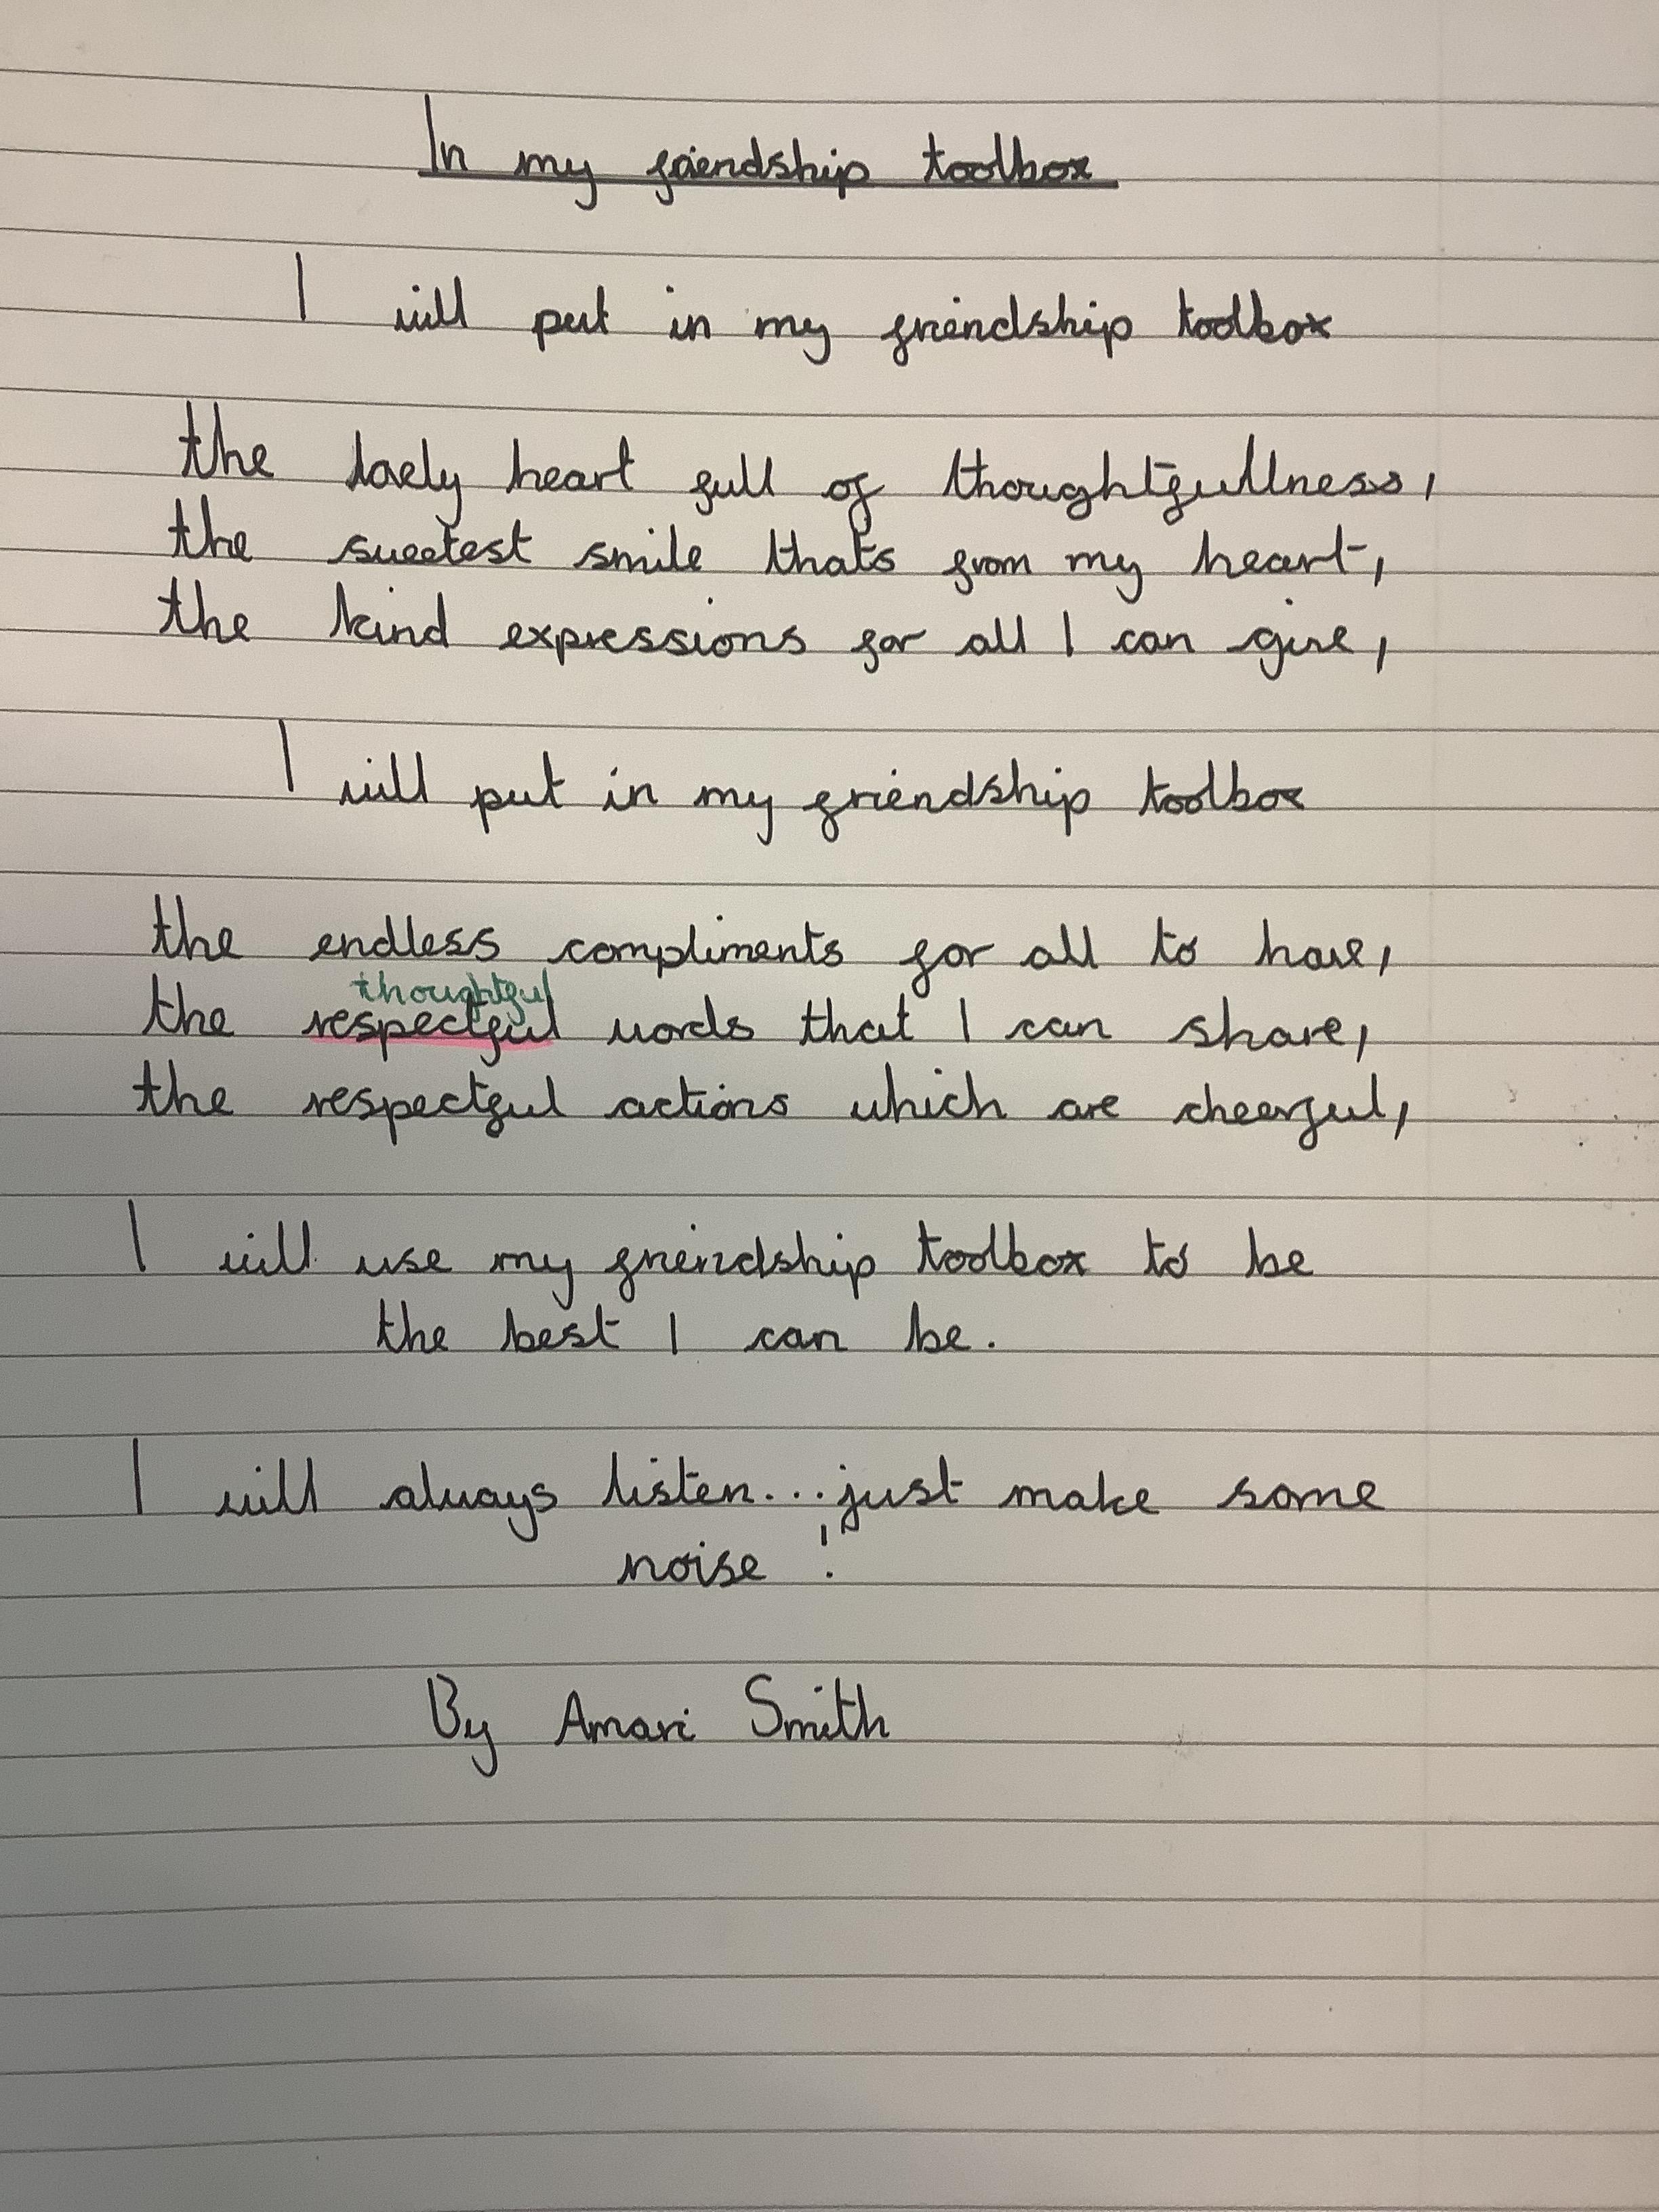 In my friendship toolbox
I will put in my friendship toolbox
the lovely heart full of thoughtfullness,
the sweetest smile thats from my heart,
the kind expressions for all I can give,
I will put in my friendship toolbox
the endless compliments for all to have,
thoughtful
the respectful words that I can share,
the respectful actions which are cheerful,
I will use my friendship toolbox to be
the best I can be.
I will always listen...just make some
noise!
By Amari Smith